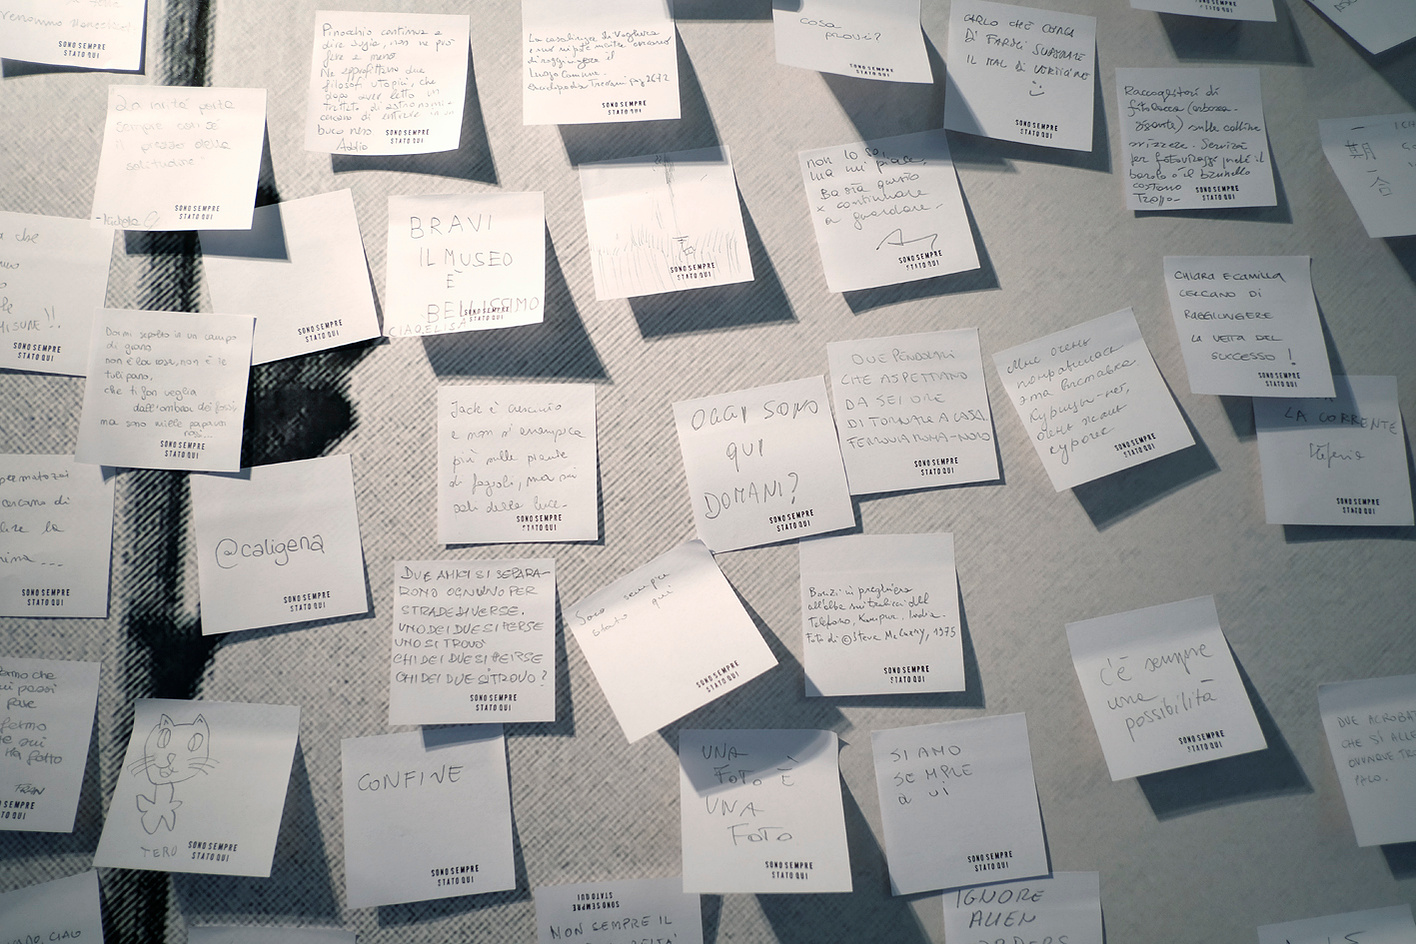 SONO SEMPRE
STATO QUI
Pinocchio continua a
dire bugie, non ne può
fare a meno
Ne approfittano due
filosofi utopici, che
dopo aver letto un
trattato di astronomia
cercano di entrare in un
buco nero.
Addio
SONO SEMPRE
STATO QUI
Luogo Comune.
SONO SEMPRE
STATO QUI
COSA
PROVI?
CARLO CHE CERCA
DI FARMI SUPERARE
IL MAL DI VERTIGINI
SONO SEMPRE
STATO QUI
Raccoglitori di
sulle colline
svizzere. Servizi
per fotoviaggi perché il
barolo o il brunello
costano
Troppo.
SONO SEMPRE
STATO QUI
porta
sempre con sé
il prezzo della
solitudine."
SONO SEMPRE
STATO QUI
SONO SEMPRE
STATO QUI
BRAVI
IL MUSEO
È
BELLISSIMO
CIAO, ELISA
SONO SEMPRE
STATO QUI
SONO SEMPRE
STATO QUI
non lo so,
ma mi piace,
Basta questo
x continuare
a guardare.
SONO SEMPRE
STATO QUI
CHIARA E CAMILLA
CERCANO DI
RAGGIUNGERE
LA VETTA DEL
SUCCESSO!
SONO SEMPRE
STATO QUI
SONO SEMPRE
STATO QUI
Dormi sepolto in un campo
di grano
non è la rosa, non è il
tulipano,
che ti fan veglia
dall'ombra dei fossi
ma sono mille papaveri
rossi...
SONO SEMPRE
STATO QUI
Jack è cresciuto
e non si arrampica
più sulle piante
di fagioli, ma sui
pali della luce.
SONO SEMPRE
STATO QUI
OGGI SONO
QUI
DOMANI?
SONO SEMPRE
STATO QUI
DUE PENDOLARI
CHE ASPETTANO
DA SEI ORE
DI TORNARE A CASA.
FERROVIA ROMA-NORD
SONO SEMPRE
STATO QUI
Мне очень
понравилась
эта выставка
Курицы-нет,
очень жаль
курочк
SONO SEMPRE
STATO QUI
LA CORRENTE
Stefania
SONO SEMPRE
STATO QUI
cercano di
SONO SEMPRE
STATO QUI
@caligena
SONO SEMPRE
STATO QUI
DUE AMICI SI SEPARA-
RONO OGNUNO PER
STRADE DIVERSE.
UNO DEI DUE SI PERSE
UNO SI TROVÒ
CHI DEI DUE SI PERSE
CHI DEI DUE SI TROVO?
SONO SEMPRE
STATO QUI
Sono sempre
stato qui
SONO SEMPRE
STATO QUI
Bonzi in preghiera
all'alba sui tralicci del
Telefono, Kanpur, India.
Foto di ©Steve McCurry, 1975
SONO SEMPRE
STATO QUI
c'è sempre
una
possibilità
SONO SEMPRE
STATO QUI
SONO SEMPRE
STATO QUI
TERU
SONO SEMPRE
STATO QUI
CONFINE
SONO SEMPRE
STATO QUI
UNA
FOTO È
UNA
FOTO
SONO SEMPRE
STATO QUI
SIAMO
SEMPRE
QUI
SONO SEMPRE
STATO QUI
DUE ACROBATI
CHE SI
PALO.
SONO SEMPRE
STATO QUI
NON SEMPRE IL
IGNORE
ALIEN
ORDERS
CIAO